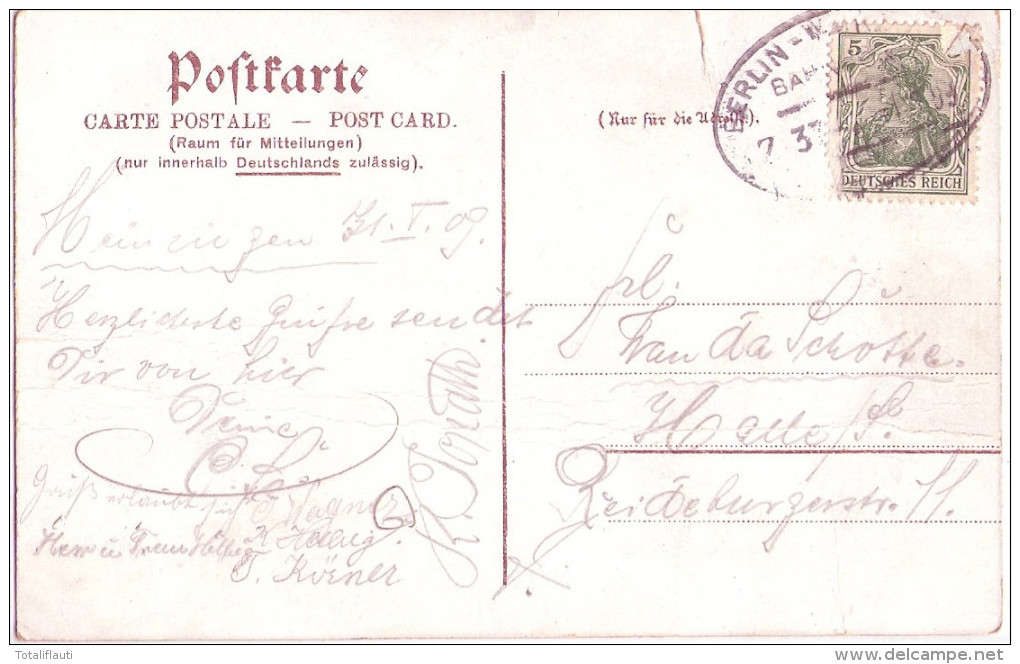 Postkarte
CARTE POSTALE — POST CARD.
(Raum für Mitteilungen)
(nur innerhalb Deutschlands zulässig).
(Nur für die Adresse).
BERLIN = W
BAH
7 31
5
DEUTSCHES REICH
31. V. 09.
Herzlichste Grüße sendet
Dir von hier
Deine
Gruß erlaubt sich E. Wagner
Herr u Frau
T. Körner
Frl.
Wanda Schotte.
Halle/S.
Reideburgerstr. 11.
Totaliflauti
delcampe.net